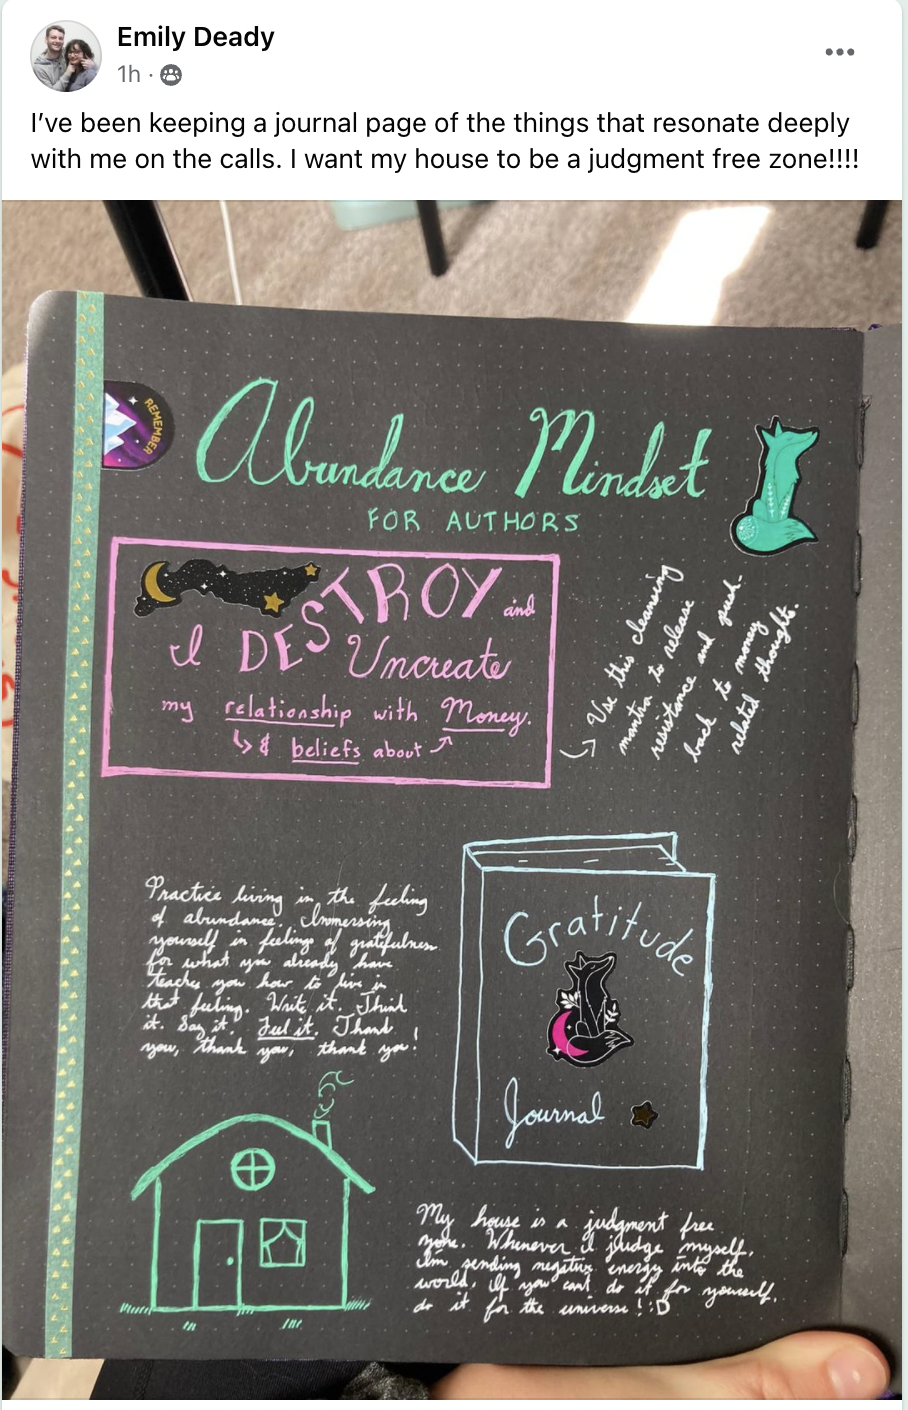 Emily Deady
1h ·
I've been keeping a journal page of the things that resonate deeply
with me on the calls. I want my house to be a judgment free zone!!!!
REMEMBER
Abundance Mindset
FOR AUTHORS
I DESTROY and
Uncreate
my relationship with Money.
↳ & beliefs about ↗
Use this cleansing
mantra to release
resistance and push-
back to money
related thoughts.
Practice living in the feeling
of abundance. Immersing
yourself in feelings of gratefulness
for what you already have
teaches you how to live in
that feeling. Write it. Think
it. Say it. Feel it. Thank
you, thank you, thank you!
Gratitude
Journal
My house is a judgment free
zone. Whenever I judge myself,
I'm sending negative energy into the
world. If you can't do it for yourself,
do it for the universe! :D